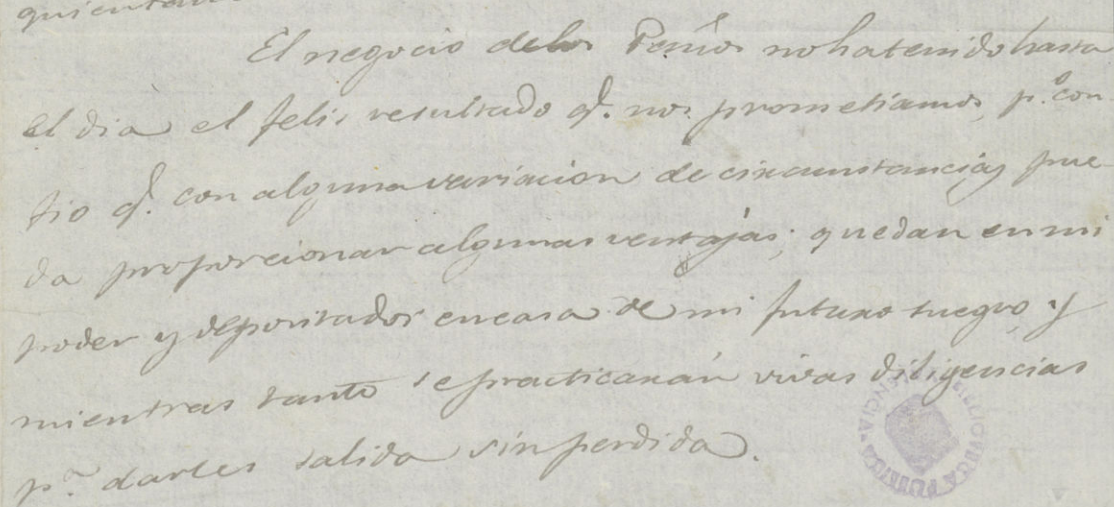 El negocio delos no ha tenido hasta
el dia el felis resultado q.e nos prometiamos, p.o con
fio q.e con alguna variacion de circunstancias pue
da proporcionar algunas ventajas; quedan en mi
poder y depositados encasa de mi futuro suegro, y
mientras tanto se practicarán vivas diligencias
p.a darles salida sin perdida.